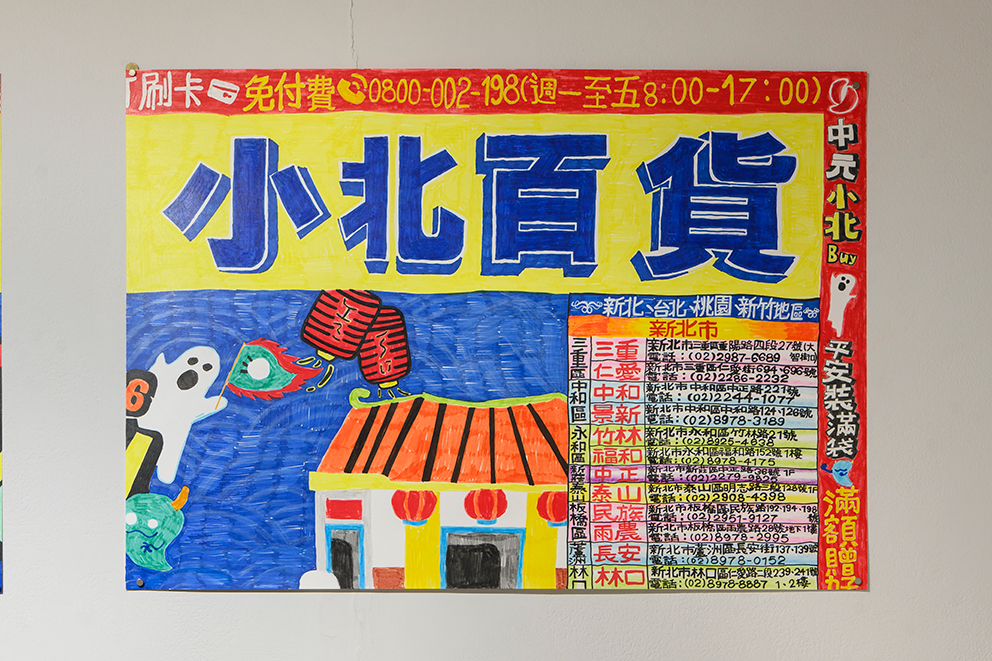 刷卡 免付費 0800-002-198(週一至五8:00-17:00)
小北百貨
中元小北
Buy
平安裝滿袋
滿額贈
6
新北、台北、桃園、新竹地區
新北市
三重區
三重 新北市三重區重陽路四段27號(大智街口)
電話:(02)2987-6689
仁愛 新北市三重區仁愛街694、696號
電話:(02)2286-2232
中和區
中和 新北市中和區中正路221號
電話:(02)2244-1077
景新 新北市中和區中和路124、126號
電話:(02)8978-3189
永和區
竹林 新北市永和區竹林路21號
電話:(02)8925-4838
福和 新北市永和區福和路152號1樓
電話:(02)8978-4175
中正 新北市新莊區中正路 號1F
電話:(02)2279-9825
泰山 新北市泰山區明志路三段128號1F
電話:(02)2908-4398
板橋區
民族 新北市板橋區民族路192、194、198號
電話:(02)2951-9127
雨農 新北市板橋區雨農路28號地下1樓
電話:(02)8978-2995
蘆洲
長安 新北市蘆洲區長安街137、139號
電話:(02)8978-0152
林口
林口 新北市林口區仁愛路一段239、241號1、2樓
電話:(02)8978-8887